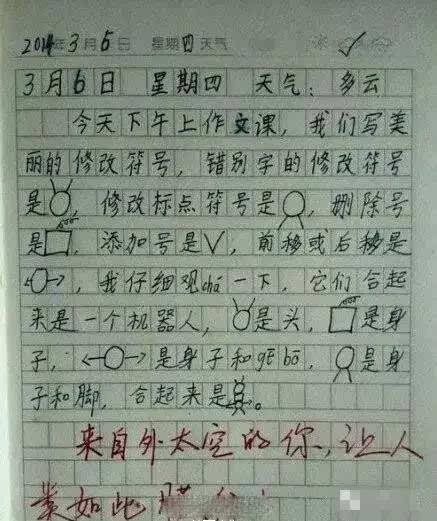 2014年3月6日 星期四天气
3月6日 星期四 天气:多云
今天下午上作文课,我们写美
丽的修改符号,错别字的修改符号
是,修改标点符号是,删除号
是,添加号是√,前移或后移是
,我仔细观chá一下,它们合起
来是一个机器人,是头,是身
子,是身子和gē bō,是身
子和脚,合起来是。
来自外太空的你,让人
类如此